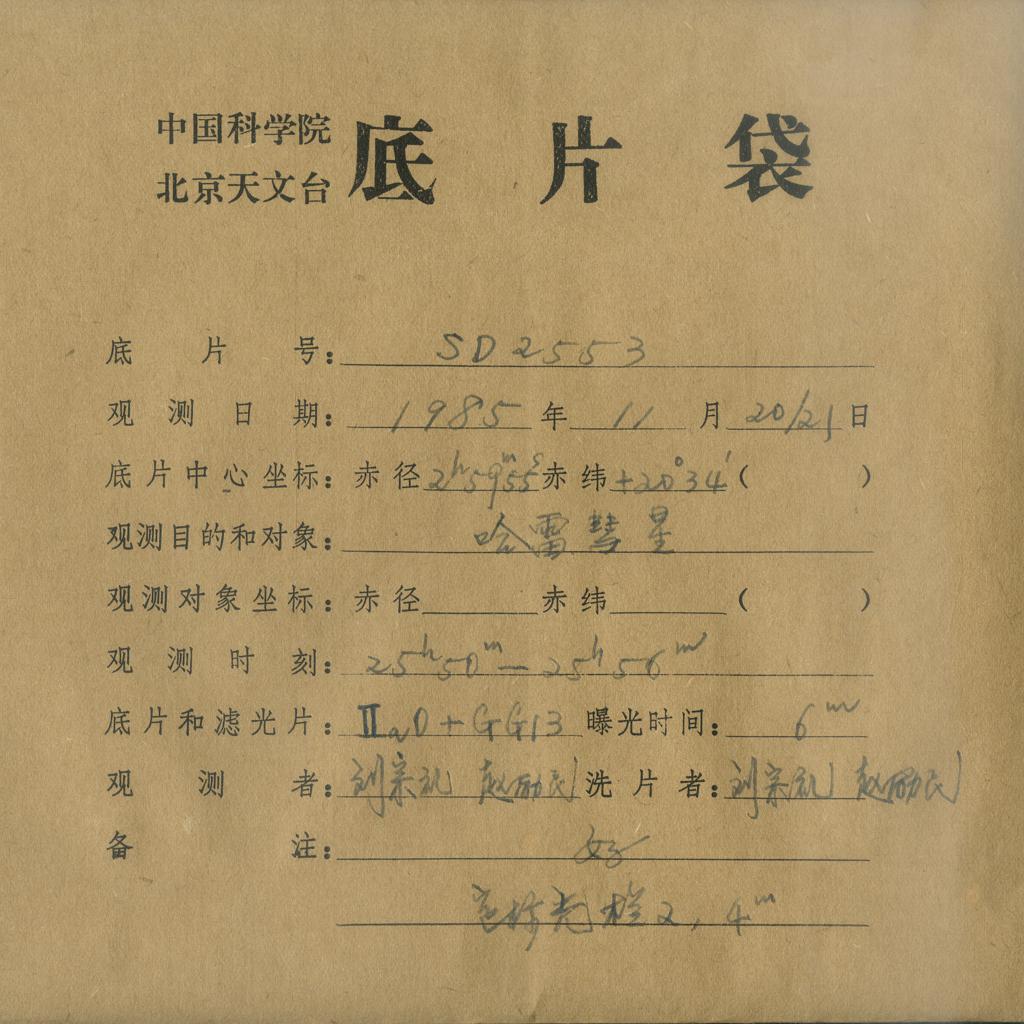 中国科学院
北京天文台
底片袋
底片号：SD2553
观测日期：1985年11月20/21日
底片中心坐标：赤径2h59m55s赤纬+20°34′（ ）
观测目的和对象：哈雷彗星
观测对象坐标：赤径 赤纬 （ ）
观测时刻：25h50m—25h56m
底片和滤光片：ⅡaD+GG13 曝光时间：6m
观测者：刘宗礼 赵励民 洗片者：刘宗礼 赵励民
备注：好
定标光楷2，4m